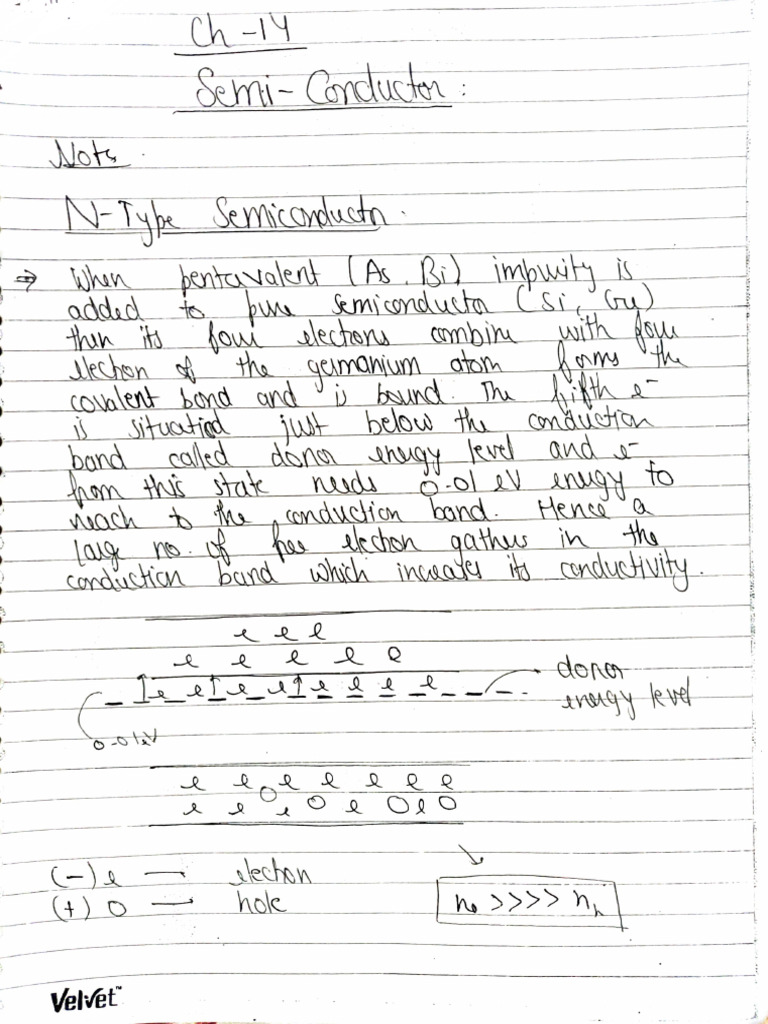 Ch-14
Semi-Conductor:
Nots.
N-Type Semiconductor.
⇒ When pentavalent (As, Bi) impurity is
added to pure semiconductor (Si, Ge)
then its four electrons combine with four
electron of the germanium atom forms the
covalent bond and is bound. The fifth e⁻
is situated just below the conduction
band called donor energy level and e⁻
from this state needs 0.01 eV energy to
reach to the conduction band. Hence a
large no. of free electron gathers in the
conduction band which increases its conductivity.
e e e
e e e e e
e e e e e e e e
donor
energy level
0.01eV
e e o e e e e e
e e e o e o e o
(-) e — electron
(+) o — hole
nₑ >>>> nₕ
Velvet™